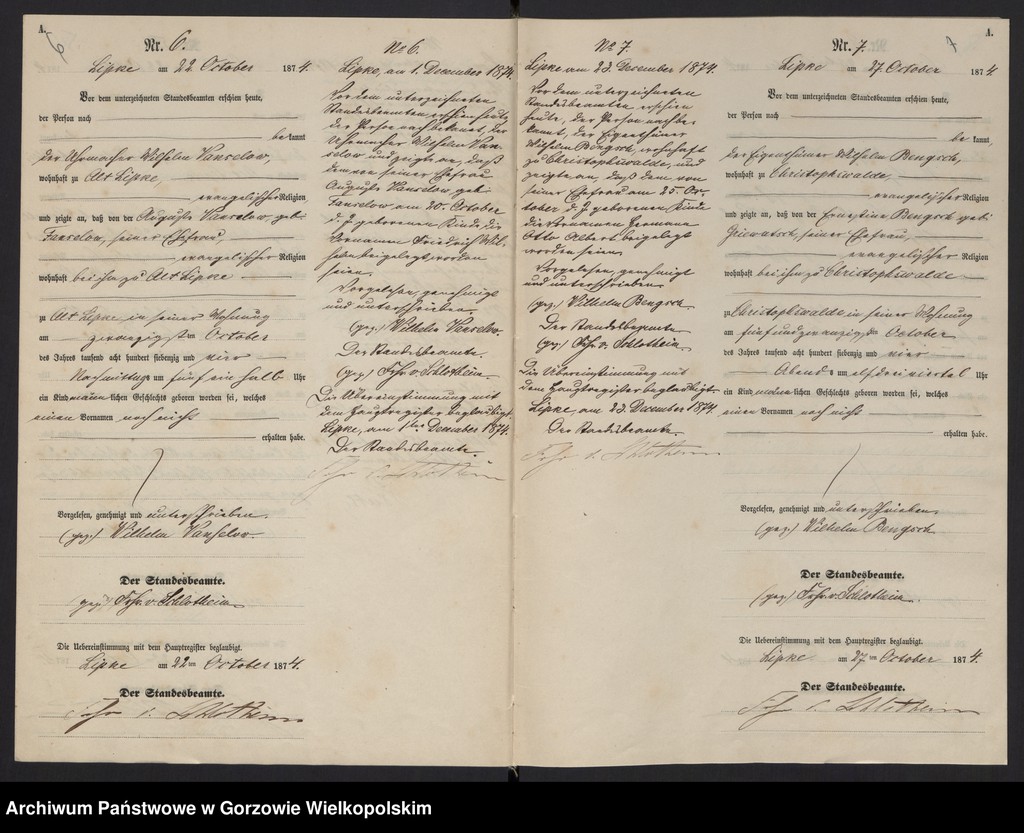 A.
6
Nr. 6.
Lipke am 22. October 1874.
Vor dem unterzeichneten Standesbeamten erschien heute,
der Person nach
bekannt,
der Uhrmacher Wilhelm Vanselow,
wohnhaft zu Alt Lipke,
evangelischer Religion
und zeigte an, daß von der Auguste Vanselow, geb.
Fanselow, seiner Ehefrau,
evangelischer Religion
wohnhaft bei ihm zu Alt Lipke
zu Alt Lipke in seiner Wohnung
am zwanzigsten October
des Jahres tausend acht hundert siebenzig und vier
Nachmittags um fünf ein halb Uhr
ein Kind männlichen Geschlechts geboren worden sei, welches
einen Vornamen noch nicht
erhalten habe.
Vorgelesen, genehmigt und unterschrieben.
(gez.) Wilhelm Vanselow.
Der Standesbeamte.
(gez.) Frhr. v. Schlotheim.
Die Uebereinstimmung mit dem Hauptregister beglaubigt.
Lipke am 22ten October 1874.
Der Standesbeamte.
Frhr v. Schlotheim
No 6.
Lipke, am 1. December 1874.
Vor dem unterzeichneten
Standesbeamten erschien heute,
der Person nach bekannt, der
Uhrmacher Wilhelm Van-
selow und zeigte an, daß
dem von seiner Ehefrau
Auguste Vanselow, geb.
Fanselow am 20. October
d. J. geborenen Kinde die
Vornamen Friedrich Wil-
helm beigelegt worden
seien.
Vorgelesen, genehmigt
und unterschrieben.
(gez.) Wilhelm Vanselow.
Der Standesbeamte.
(gez.) Frhr. v. Schlotheim.
Die Übereinstimmung mit
dem Hauptregister beglaubigt.
Lipke, am 1ten December 1874.
Der Standesbeamte.
Frhr v. Schlotheim
No 7.
Lipke am 23. December 1874.
Vor dem unterzeichneten
Standesbeamten erschien
heute, der Person nach be-
kannt, der Eigenthümer
Wilhelm Bengsch, wohnhaft
zu Christophswalde, und
zeigte an, daß dem von
seiner Ehefrau am 25. Oc-
tober d. J. geborenen Kinde
die Vornamen Hermann
Otto Albert beigelegt
worden seien.
Vorgelesen, genehmigt
und unterschrieben.
(gez.) Wilhelm Bengsch.
Der Standesbeamte
(gez.) Frhr. v. Schlotheim
Die Übereinstimmung mit
dem Hauptregister beglaubigt.
Lipke, am 23. December 1874.
Der Standesbeamte.
Frhr v. Schlotheim
A.
7
Nr. 7.
Lipke am 27. October 1874
Vor dem unterzeichneten Standesbeamten erschien heute,
der Person nach
bekannt,
der Eigenthümer Wilhelm Bengsch,
wohnhaft zu Christophswalde,
evangelischer Religion
und zeigte an, daß von der Ernestine Bengsch geb.
seiner Ehefrau,
evangelischer Religion
wohnhaft bei ihm zu Christophswalde
zu Christophswalde in seiner Wohnung
am fünfundzwanzigsten October
des Jahres tausend acht hundert siebenzig und vier
Abends um elf dreiviertel Uhr
ein Kind männlichen Geschlechts geboren worden sei, welches
einen Vornamen noch nicht
erhalten habe.
Vorgelesen, genehmigt und unterschrieben.
(gez.) Wilhelm Bengsch
Der Standesbeamte.
(gez.) Frhr. v. Schlotheim.
Die Uebereinstimmung mit dem Hauptregister beglaubigt.
Lipke am 27ten October 1874.
Der Standesbeamte.
Frhr v. Schlotheim
Archiwum Państwowe w Gorzowie Wielkopolskim